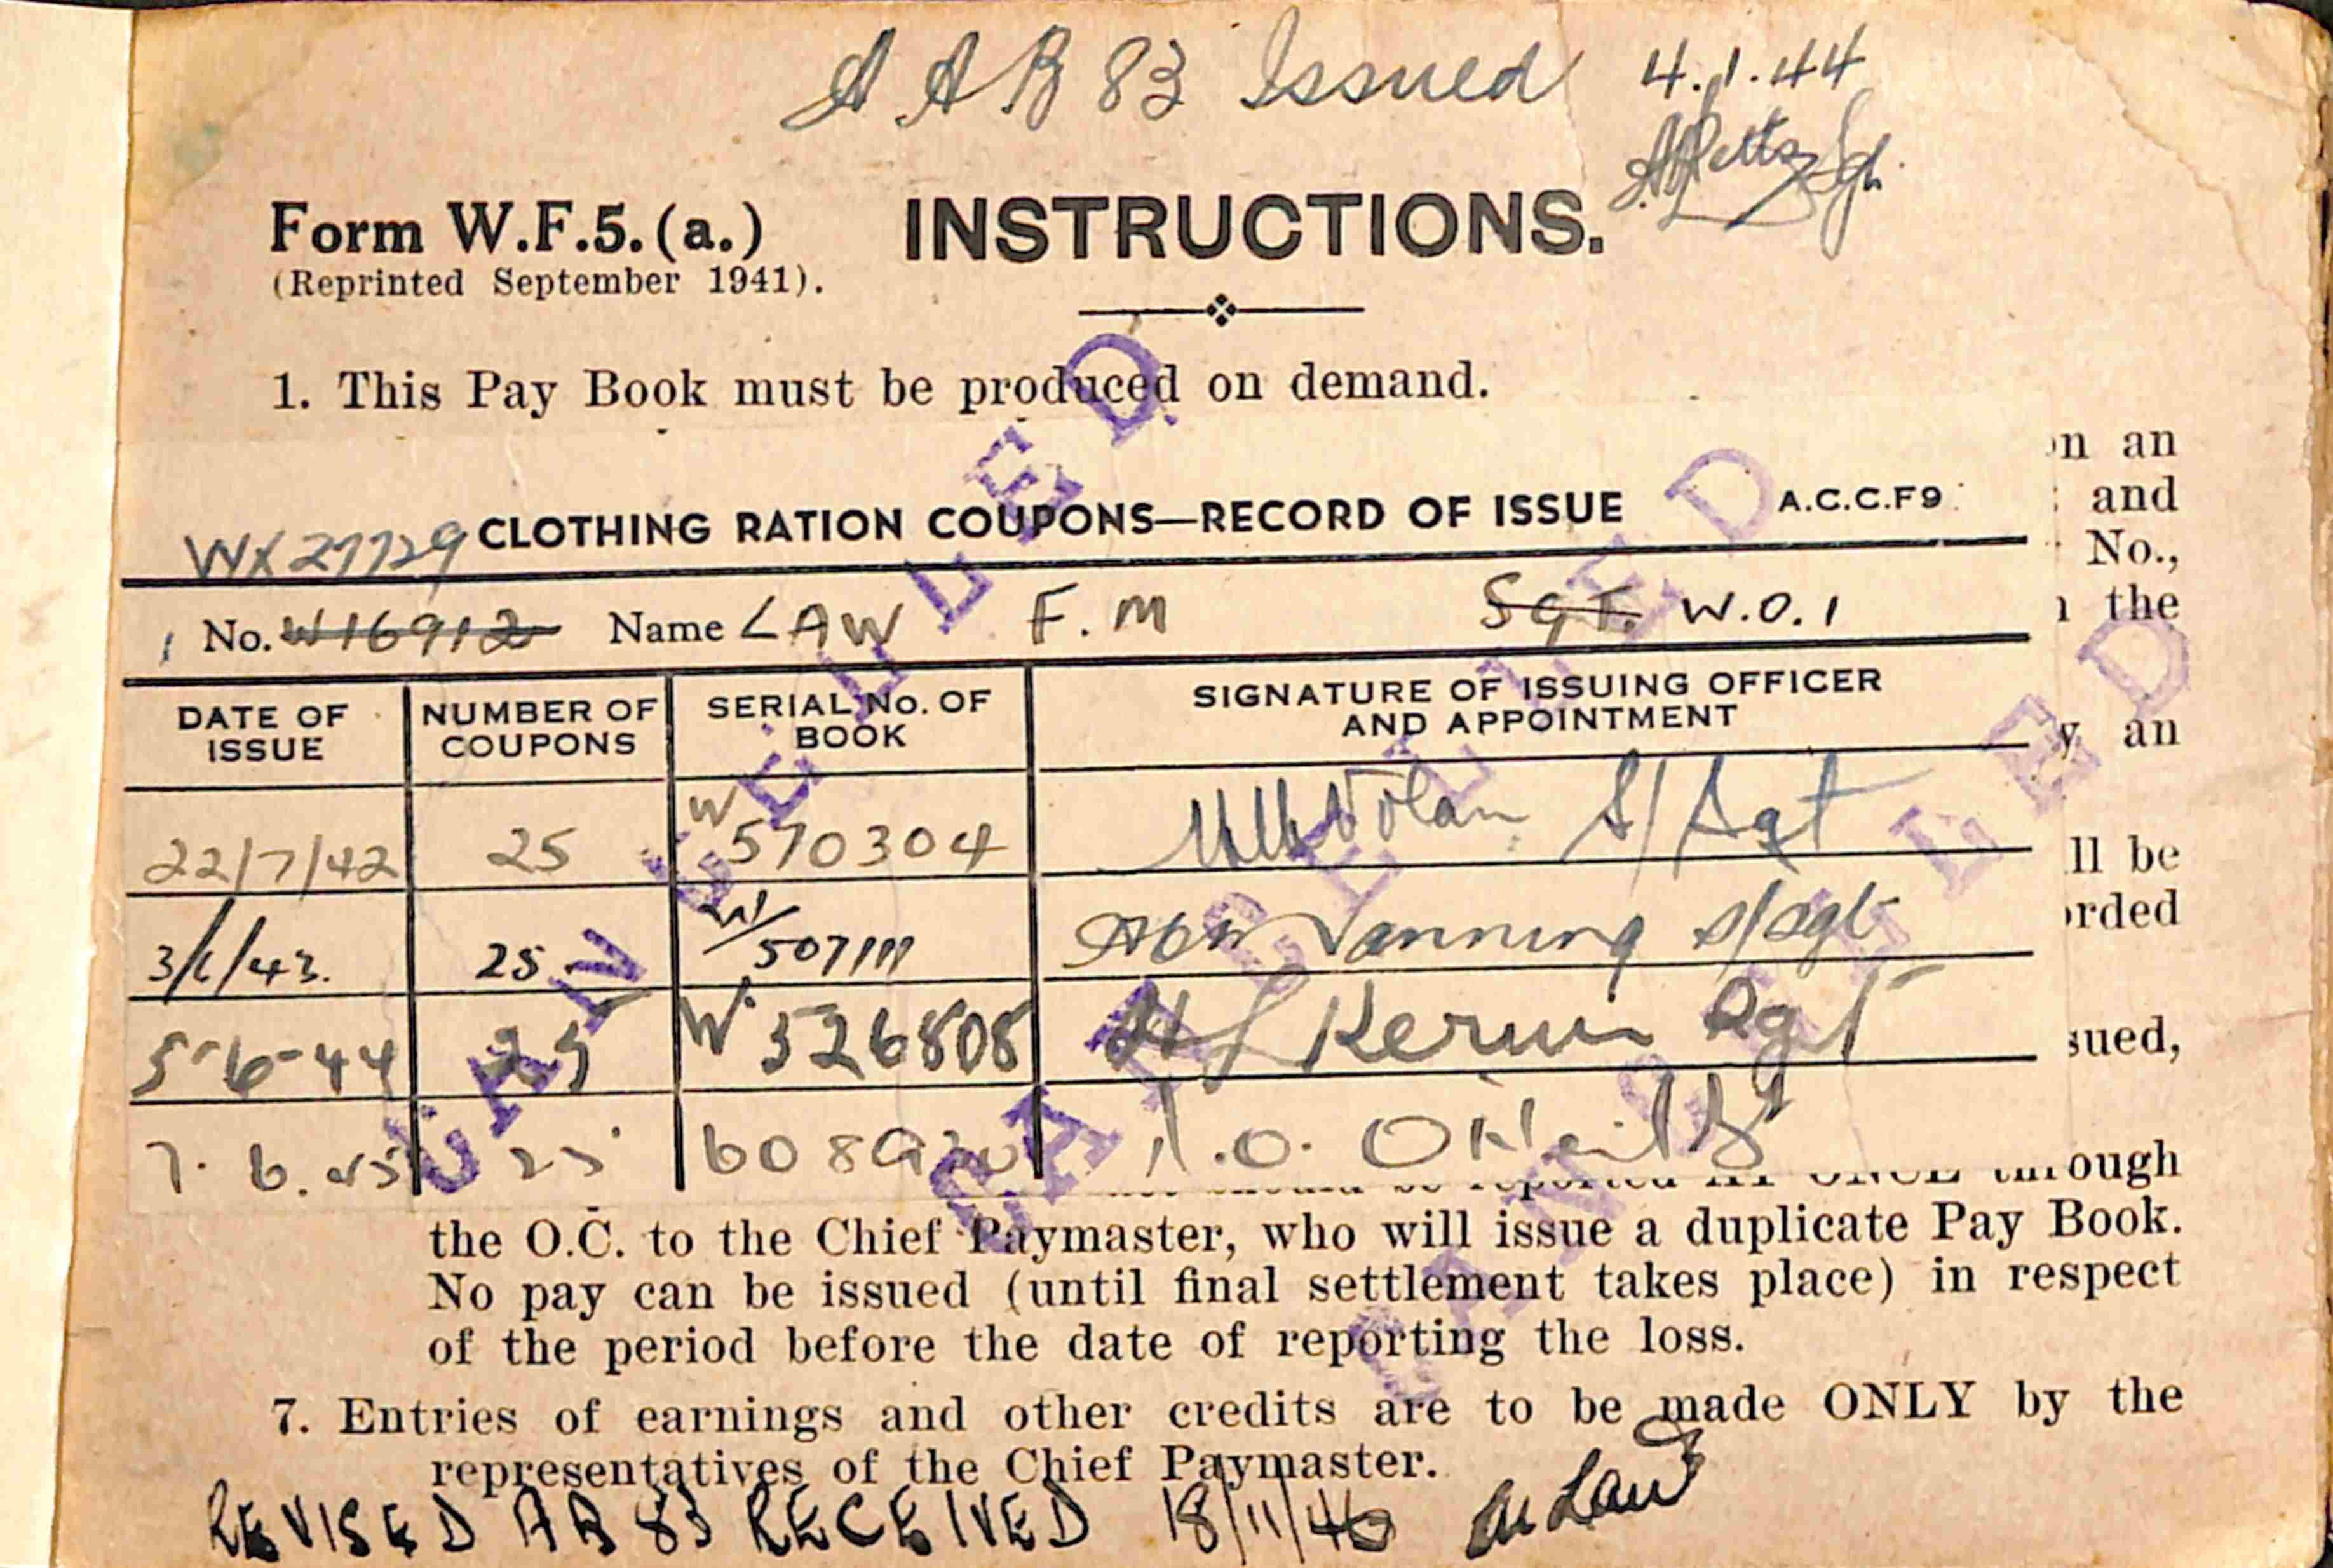 A AB 83 Issued 4.1.44
Form W.F.5.(a.) INSTRUCTIONS.
(Reprinted September 1941).
1. This Pay Book must be produced on demand.
on an
and
No.,
the
y an
ll be
orded
sued,
WX27729 CLOTHING RATION COUPONS—RECORD OF ISSUE A.C.C.F9
No. W16912 Name LAW F. M Sgt. W.O.1
DATE OF ISSUE NUMBER OF COUPONS SERIAL No. OF BOOK SIGNATURE OF ISSUING OFFICER AND APPOINTMENT
22/7/42 25 W 570304 Nolan S/Sgt
25 W/ Manning S/Sgt
5-6-44 25 W 326808 Kerwin Sgt
7. 6. 45 25 O'Neill
should be reported AT ONCE through
the O.C. to the Chief Paymaster, who will issue a duplicate Pay Book.
No pay can be issued (until final settlement takes place) in respect
of the period before the date of reporting the loss.
7. Entries of earnings and other credits are to be made ONLY by the
representatives of the Chief Paymaster.
REVISED AA 83 RECEIVED 18/11/46 Law
CANCELLED
CANCELLED
CANCELLED